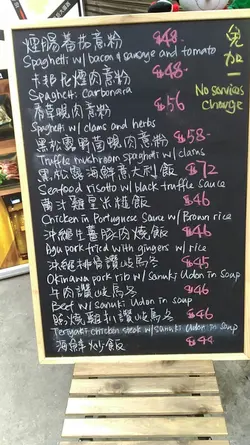 煙腸蕃茄意粉 $48
Spaghetti w/ bacon & sausage and tomato
卡邦尼煙肉意粉 $48
Spaghetti Carbonara
香草蜆肉意粉 $56
Spaghetti w/ clams and herbs
黑松露野菌蜆肉意粉 $58
Truffle mushroom spaghetti w/ clams
黑松露海鮮意大利飯 $72
Seafood risotto w/ black truffle sauce
葡汁雞皇米粒飯 $46
Chicken in Portuguese Sauce w/ Brown rice
沖繩生薑豚肉燒飯 $46
Kyu pork fried with gingers w/ rice
沖繩排骨讚岐烏冬 $45
Okinawa pork rib w/ sanuki Udon in soup
牛肉讚岐烏冬 $46
Beef w/ sanuki Udon in soup
燒雞扒讚岐烏冬 $46
Teriyaki chicken steak w/ sanuki udon in soup
海鮮炒飯 $44
免加一
No services
charge